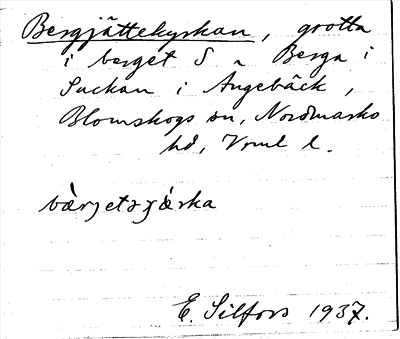 Bergjättekyrkan, grotta
i berget S ~ Berga i
Sackan i Angebäck,
Blomskogs sn, Nordmarks
hd, Vrml l.
E. Silfors 1937.